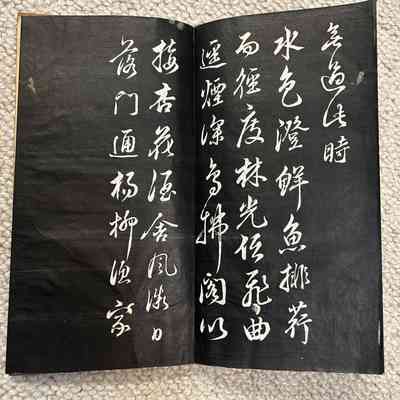 無過此時
水色澄鮮魚排荇
而徑度林光低飛曲
逕煙深鳥拂閣以
接杏花酒舍風微日
落門通楊柳漁家